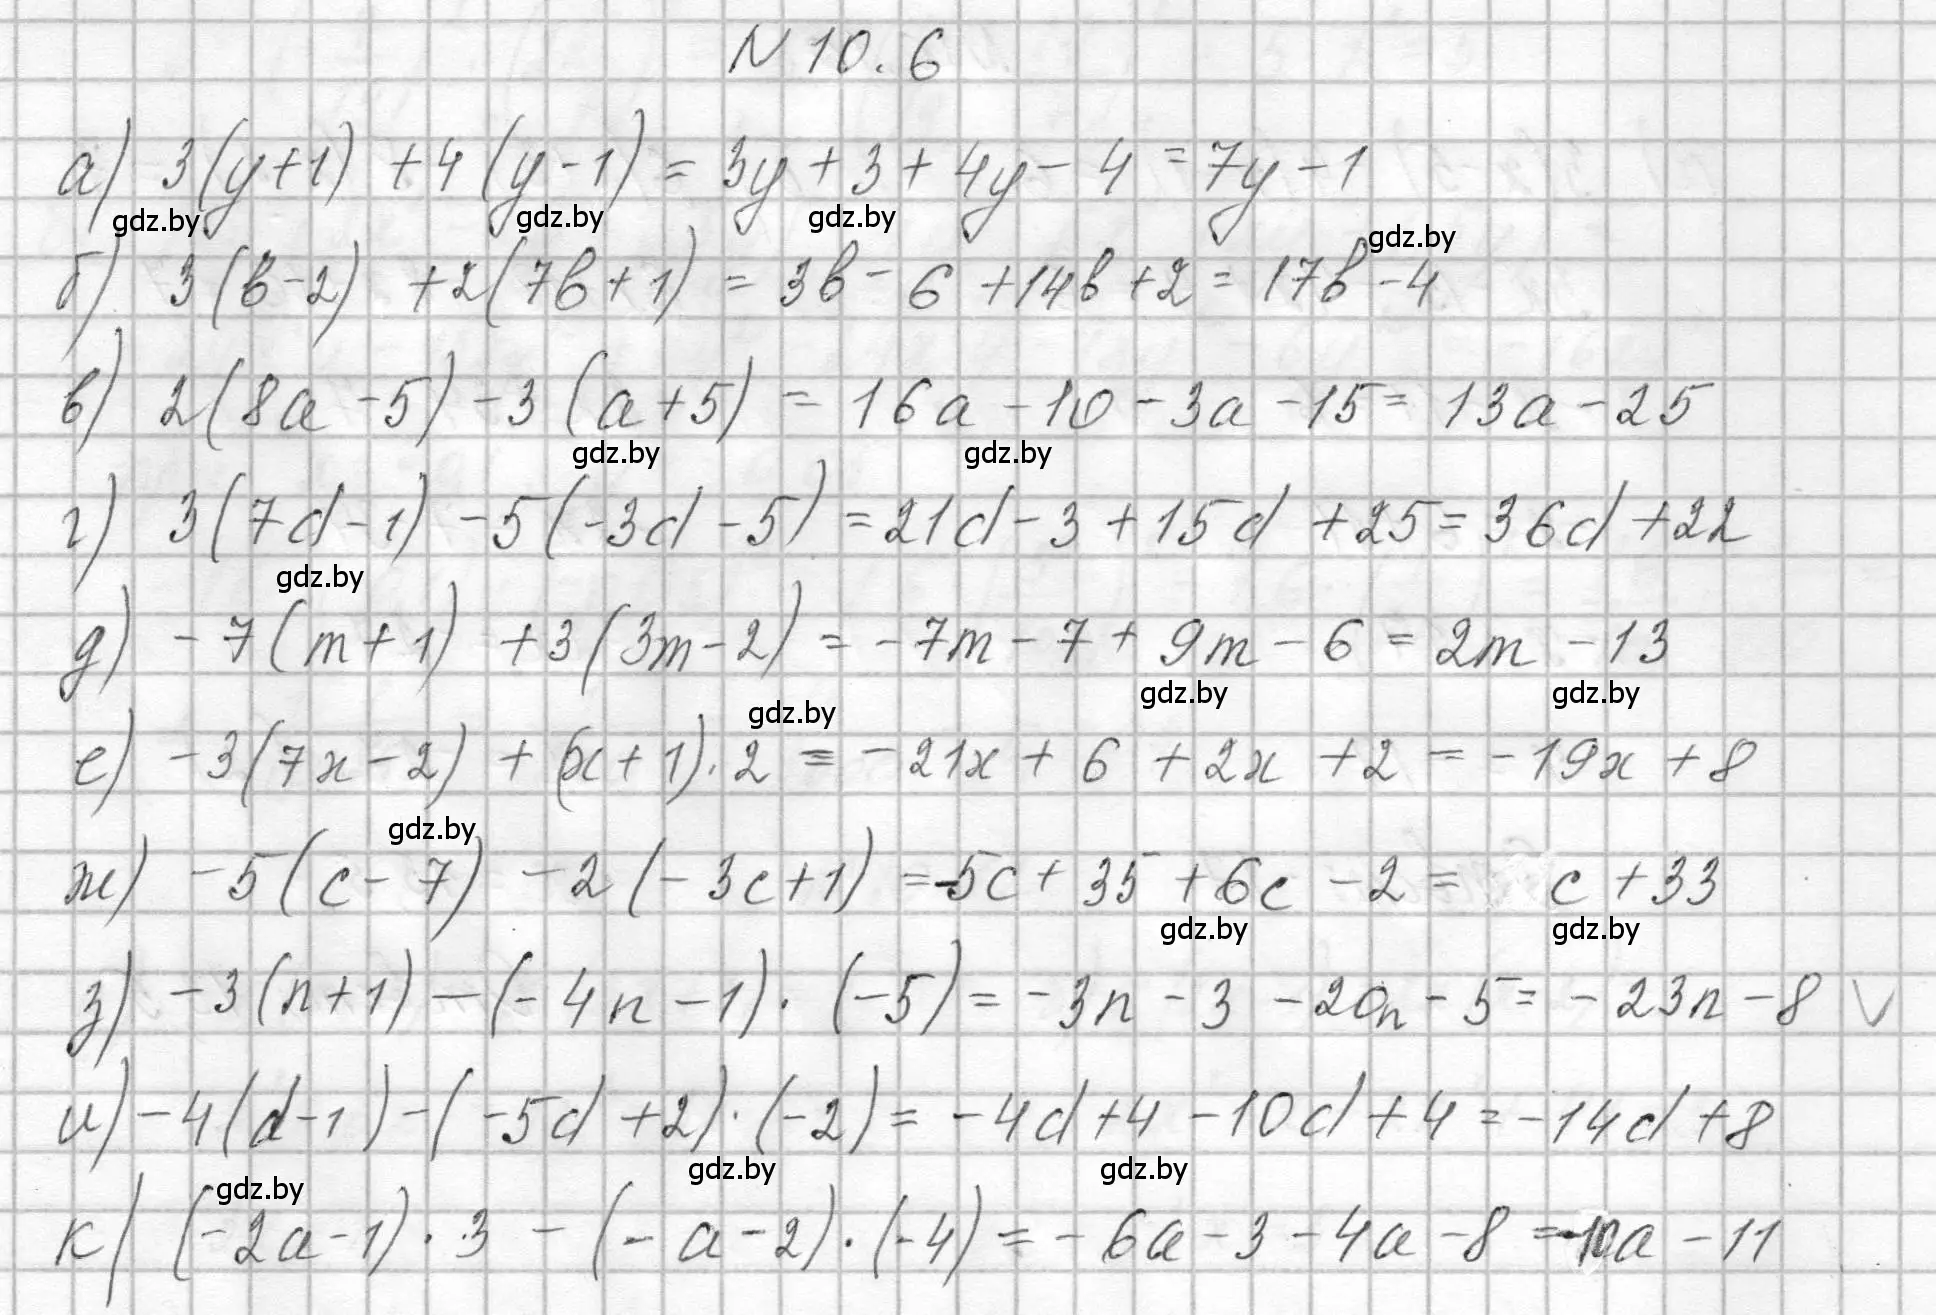 N 10.6
а) 3(y+1) +4(y-1) = 3y+3+4y-4 = 7y-1
gdz.by gdz.by gdz.by gdz.by
б) 3(b-2) +2(7b+1) = 3b-6+14b+2 = 17b-4
в) 2(8a-5)-3(a+5) = 16a-10-3a-15 = 13a-25
gdz.by gdz.by
г) 3(7d-1) -5(-3d-5) = 21d-3+15d+25 = 36d+22
gdz.by
д) -7(m+1) +3(3m-2) = -7m-7+9m-6 = 2m-13
gdz.by gdz.by gdz.by
е) -3(7x-2) + (x+1)·2 = -21x+6+2x+2 = -19x+8
gdz.by
ж) -5(c-7) -2(-3c+1) = -5c+35+6c-2 = c+33
gdz.by gdz.by
з) -3(n+1) - (-4n-1)·(-5) = -3n-3-20n-5 = -23n-8 V
и) -4(d-1) - (-5d+2)·(-2) = -4d+4-10d+4 = -14d+8
gdz.by gdz.by gdz.by
к) (-2a-1)·3 - (-a-2)·(-4) = -6a-3-4a-8 = -10a-11